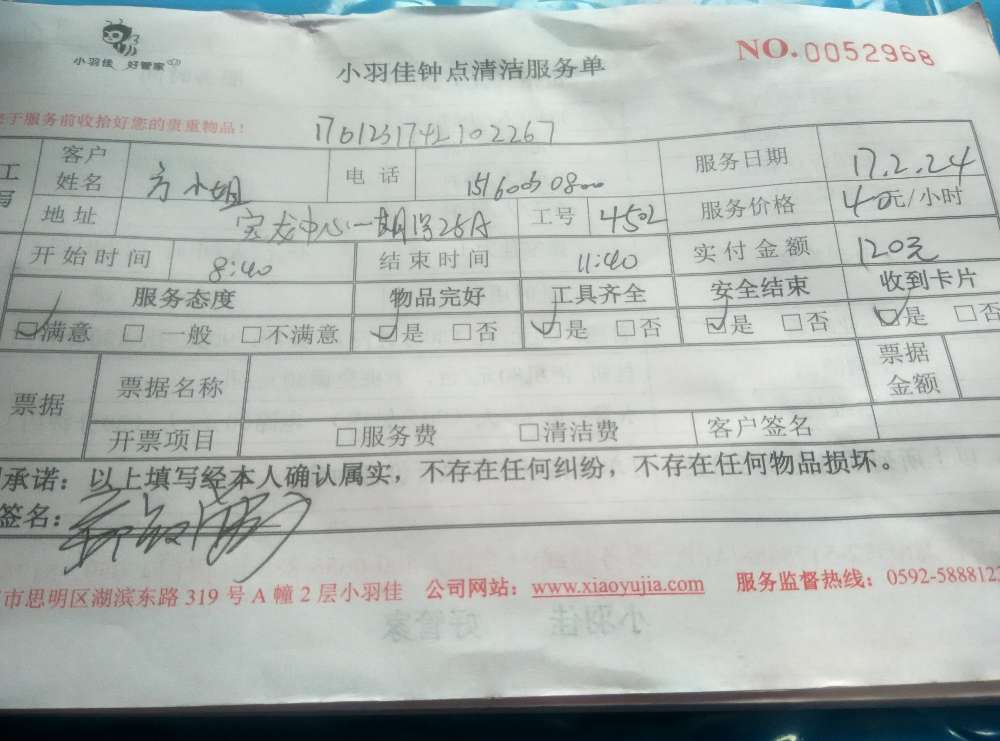 小羽佳 好管家
小羽佳钟点清洁服务单
NO.0052968
于服务前收拾好您的贵重物品!
1701231742102267
客户姓名 方小姐 电话 服务日期 17.2.24
地址 宝龙中心一期 25A 工号 4502 服务价格 40元/小时
开始时间 8:40 结束时间 11:40 实付金额 120元
服务态度 物品完好 工具齐全 安全结束 收到卡片
☑满意 □一般 □不满意 ☑是 □否 ☑是 □否 ☑是 □否 ☑是 □否
票据 票据名称 票据金额
开票项目 □服务费 □清洁费 客户签名
承诺：以上填写经本人确认属实，不存在任何纠纷，不存在任何物品损坏。
签名：
市思明区湖滨东路 319 号 A 幢 2 层小羽佳 公司网站：www.xiaoyujia.com 服务监督热线：0592-5888122